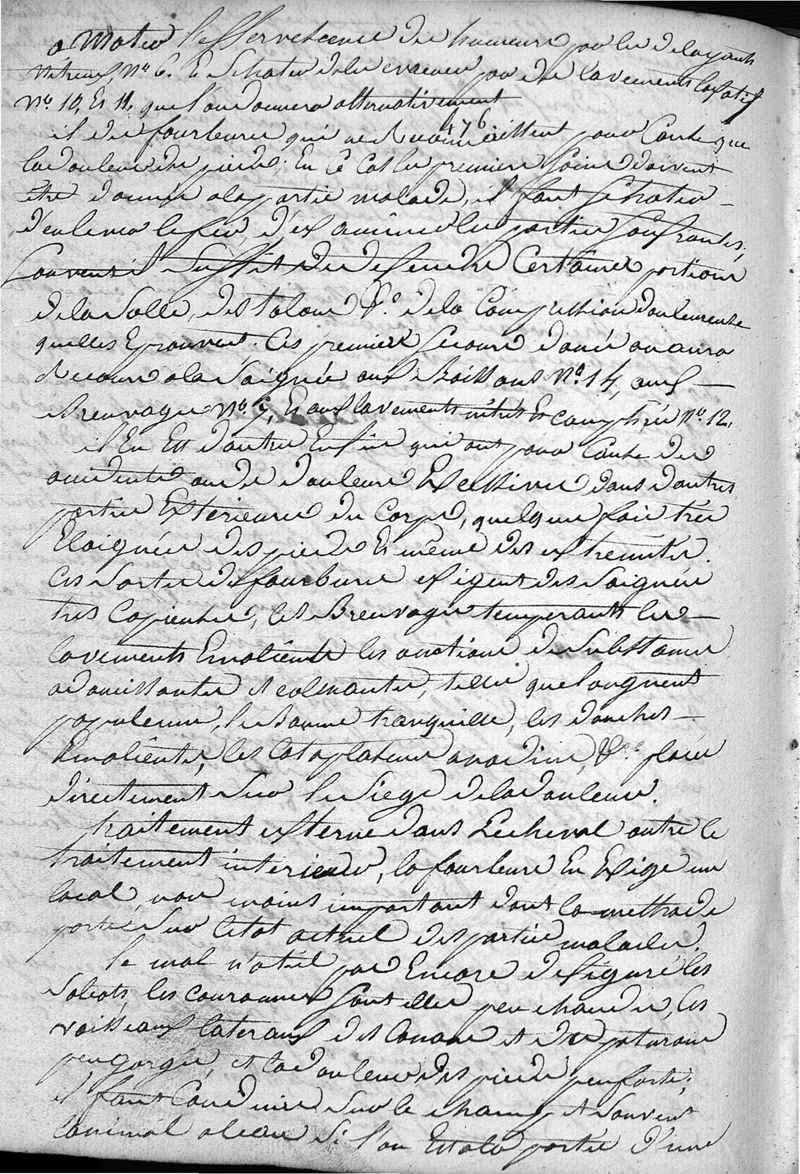 a mater l'effervescence des humeurs par les delayants
nitreux N.o 6. et se hater de les evacuer par des lavements laxatifs
N.o 10, et 11. que l'on donnera alternativement
176.
il est des fourbures qui ne reconnoissent pour cause que
la douleur des pieds; En ce cas les premiers soins doivent
être donnés a la partie malade, il faut se hater
d'enlever le fer, d'examiner les parties soufrantes;
Souvent il suffit de defendre Certaines portions
de la Solle, des talons &c. de la Compression douleureuse
quelles Eprouvent. Ces premiers secours donés on aura
Recours a la Saignée aux Boissons N.o 14, aux
Breuvages N.o 9, Et aux lavements nitrés Et camphrés N.o 12.
il En Est d'autres Enfin qui ont pour Cause des
accidents ou de douleurs Excessives dans d'autres
parties Exterieures du Corps, quelque fois très
Eloignées des pieds Et même des extremités.
Ces Sortes de fourbures exigent des Saignées
tres Copieuses, les Breuvages temperants les
lavements Emolients les onctions de Substances
adoucissantes et calmantes, telles que l'onguent
populeum, le Baume tranquille, les douches
Emolientes, les Cataplasmes anodins, &c. placés
directement Sur le Siege de la douleur.
traitement externe dans Le cheval outre le
traitement interieur, la fourbure En Exige un
local, non moins important dont la methode
porte Sur l'etat actuel des parties malades.
le mal n'a t'il pas Encore defiguré les
Sabots, les couronnes Sont elles peu chaudes, les
vaisseaux lateraux des Canons et des paturons
peu gorgés, et la douleur des pieds peu forte;
il faut Conduire Sur le champ et Souvent
l'animal a l'eau Si l'on Est a la portée d'une